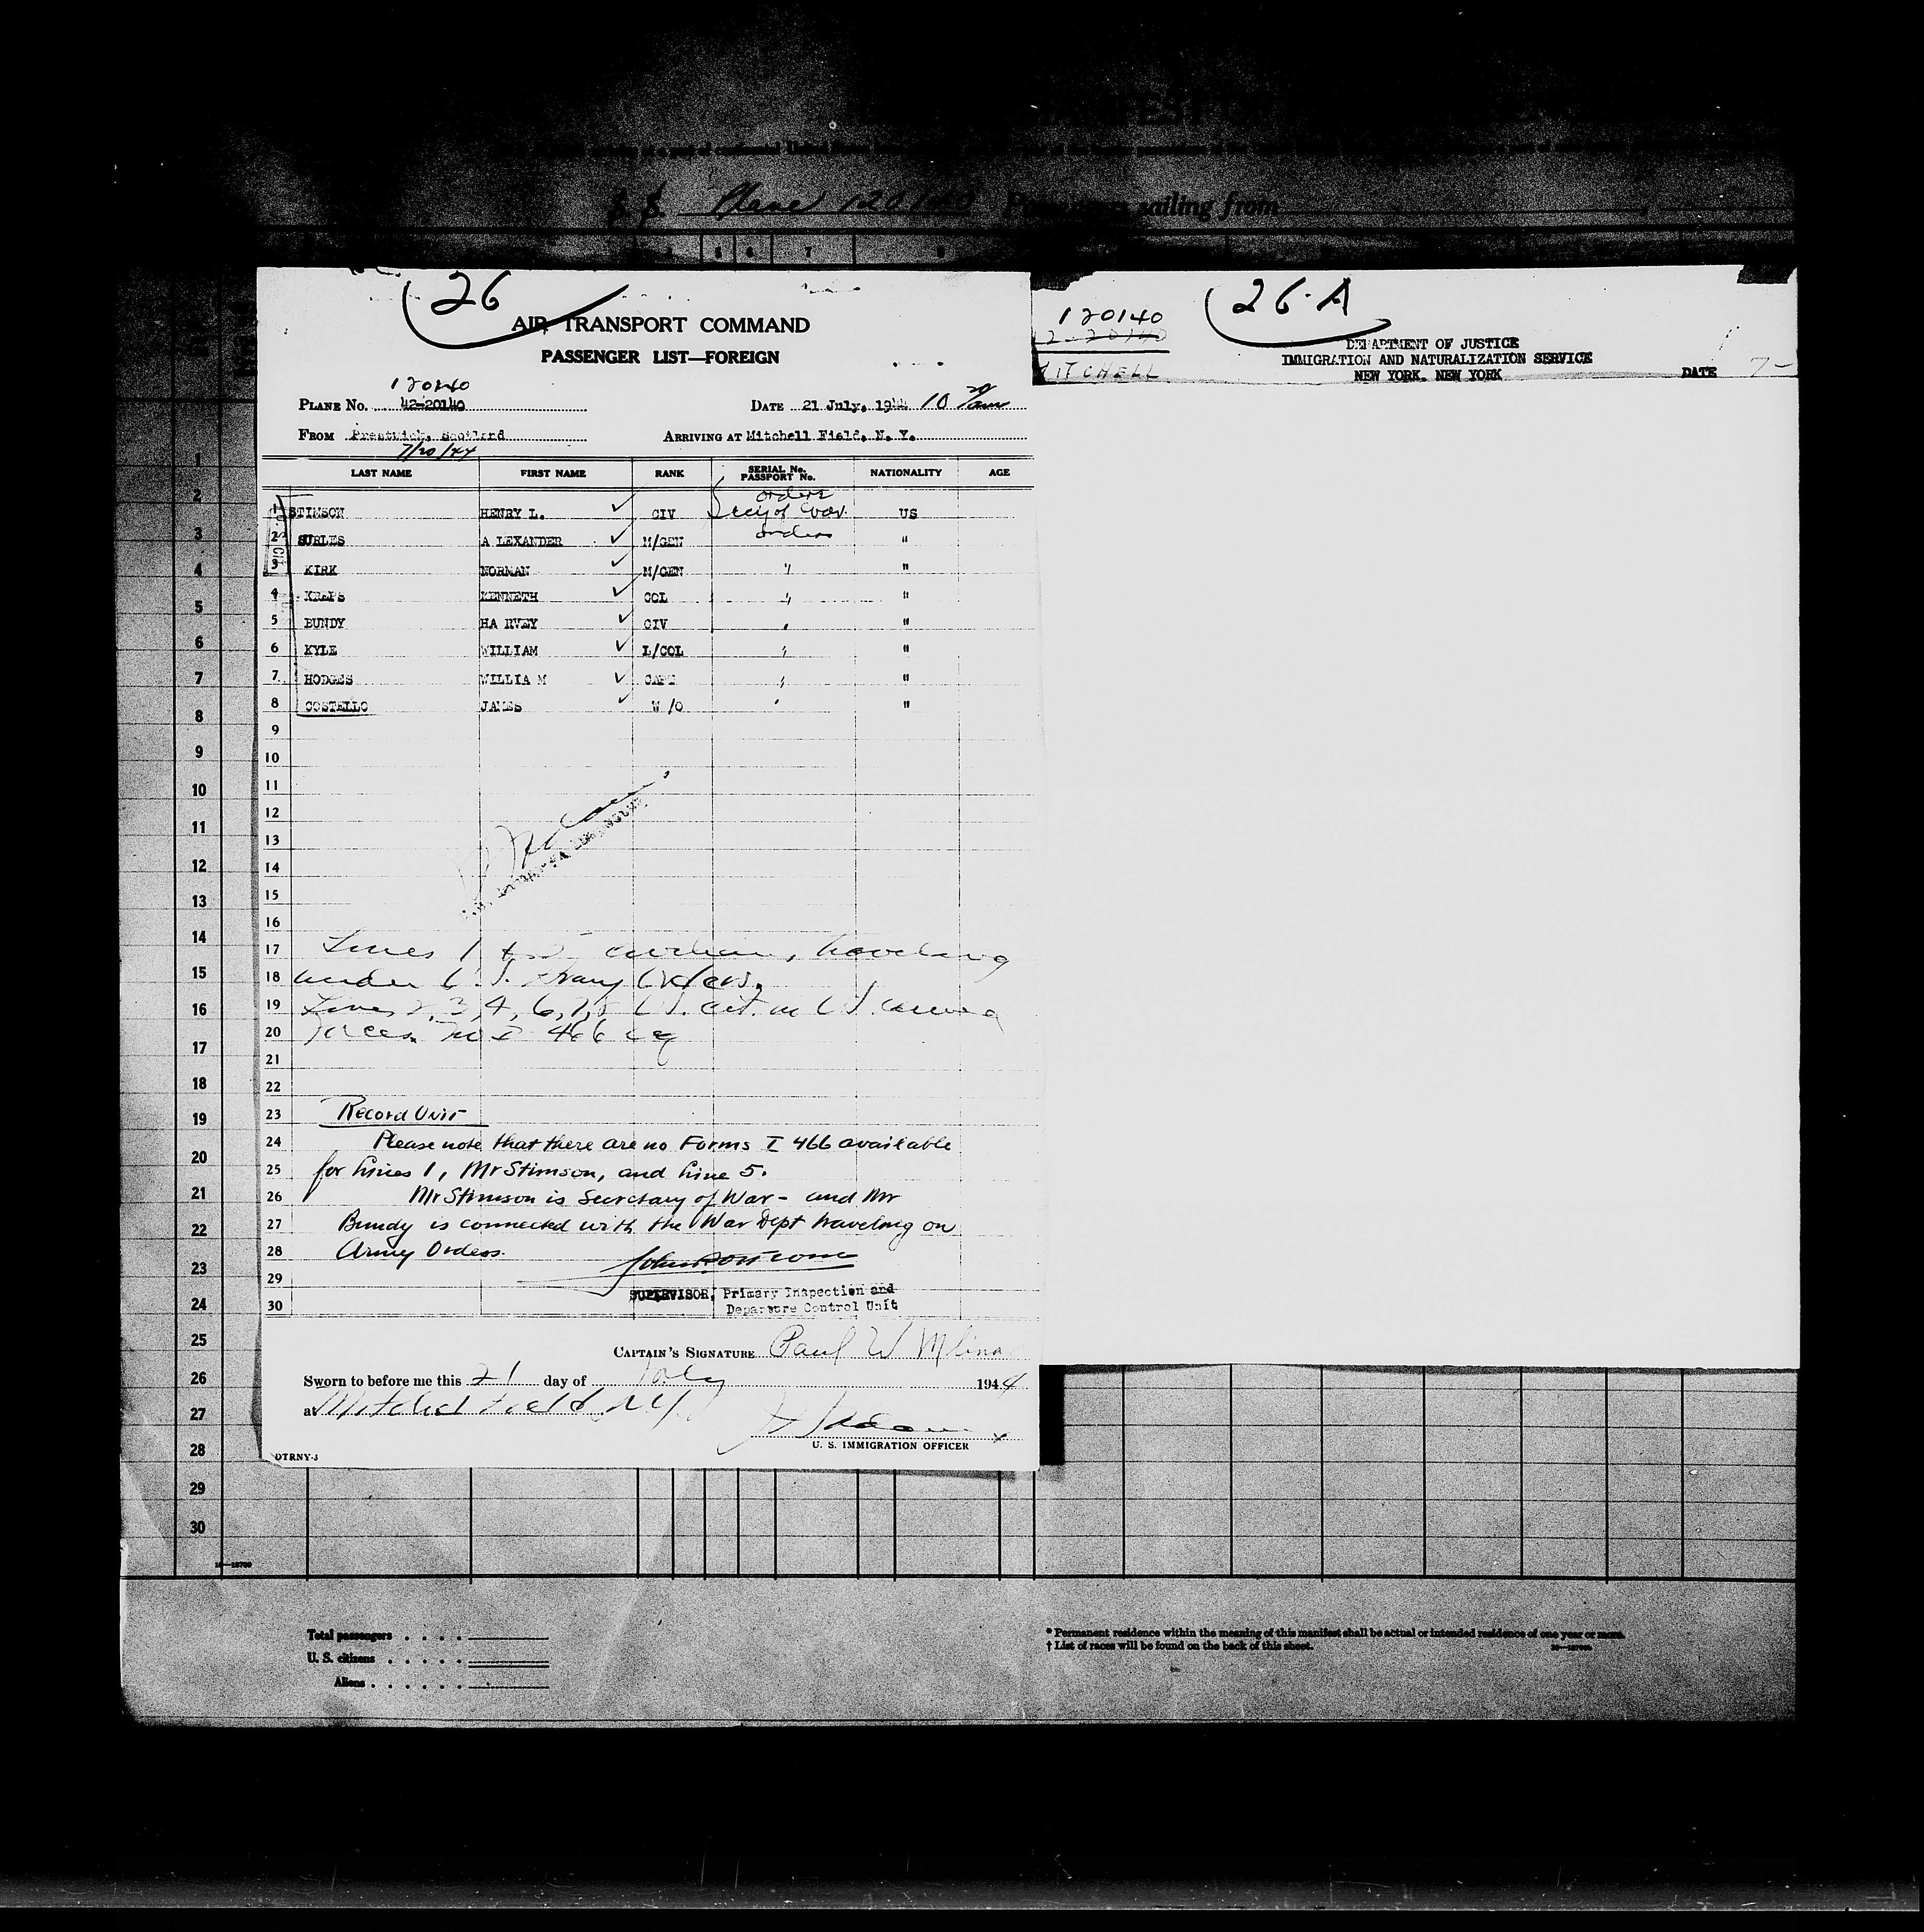 S. S. Plane 120140 Passengers sailing from
26
AIR TRANSPORT COMMAND
PASSENGER LIST—FOREIGN
120140
PLANE No. 42-20140 DATE 21 July, 1944 10
FROM Prestwick, Scotland ARRIVING AT Mitchell Field, N. Y.
7/20/44
LAST NAME FIRST NAME RANK SERIAL No. PASSPORT No. NATIONALITY AGE
orders
1 STIMSON HENRY L. ✓ CIV Secy of War. US
2 SURLES A LEXANDER ✓ M/GEN orders "
3 KIRK NORMAN ✓ M/GEN " "
4 KRAPS KENNETH ✓ COL " "
5 BUNDY HA RVEY ✓ CIV " "
6 KYLE WILLIAM ✓ L/COL " "
7 HODGES WILLIA M ✓ CAPT " "
8 COSTELLO JAMES ✓ W /O " "
9
10
11
12
13
14
15
16
17 Lines 1 & 5 civilians, traveling
18 under U.S. Army Orders.
19 Lines 2, 3, 4, 6, 7, 8 U.S. cit. in U.S. armed
20 forces. No I 466
21
22
23 Record Unit
24 Please note that there are no Forms I 466 available
25 for Lines 1, Mr Stimson, and Line 5.
26 Mr Stimson is Secretary of War - and Mr
27 Bundy is connected with the War Dept traveling on
28 Army Orders.
29
SUPERVISOR, Primary Inspection and
30 Departure Control Unit
CAPTAIN'S SIGNATURE Paul W Mlinar
Sworn to before me this 21 day of July 1944
at Mitchel Field, N.Y.
U. S. IMMIGRATION OFFICER
DTRNY-3
26-A
120140
2-20140
MITCHELL
DEPARTMENT OF JUSTICE
IMMIGRATION AND NATURALIZATION SERVICE
NEW YORK, NEW YORK DATE 7-
1
2
3
4
5
6
7
8
9
10
11
12
13
14
15
16
17
18
19
20
21
22
23
24
25
26
27
28
29
30
Total passengers . . . .
U. S. citizens . . . . .
Aliens . . . . . .
* Permanent residence within the meaning of this manifest shall be actual or intended residence of one year or more.
† List of races will be found on the back of this sheet.